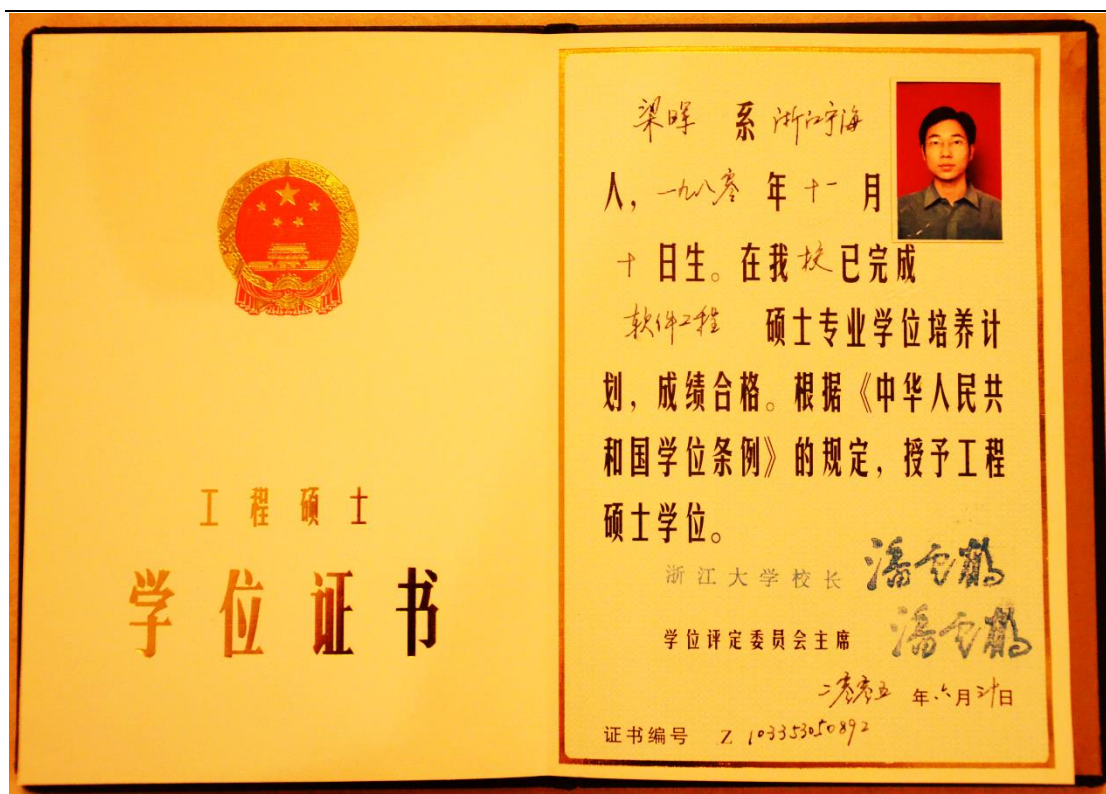 工程硕士
学位证书
梁晖 系 浙江宁海
人，一九八零 年 十一 月
十 日生。在我校已完成
软件工程 硕士专业学位培养计
划，成绩合格。根据《中华人民共
和国学位条例》的规定，授予工程
硕士学位。
浙江大学校长 潘云鹤
学位评定委员会主席 潘云鹤
二零零五 年 六 月 三十 日
证书编号 Z 103353050892